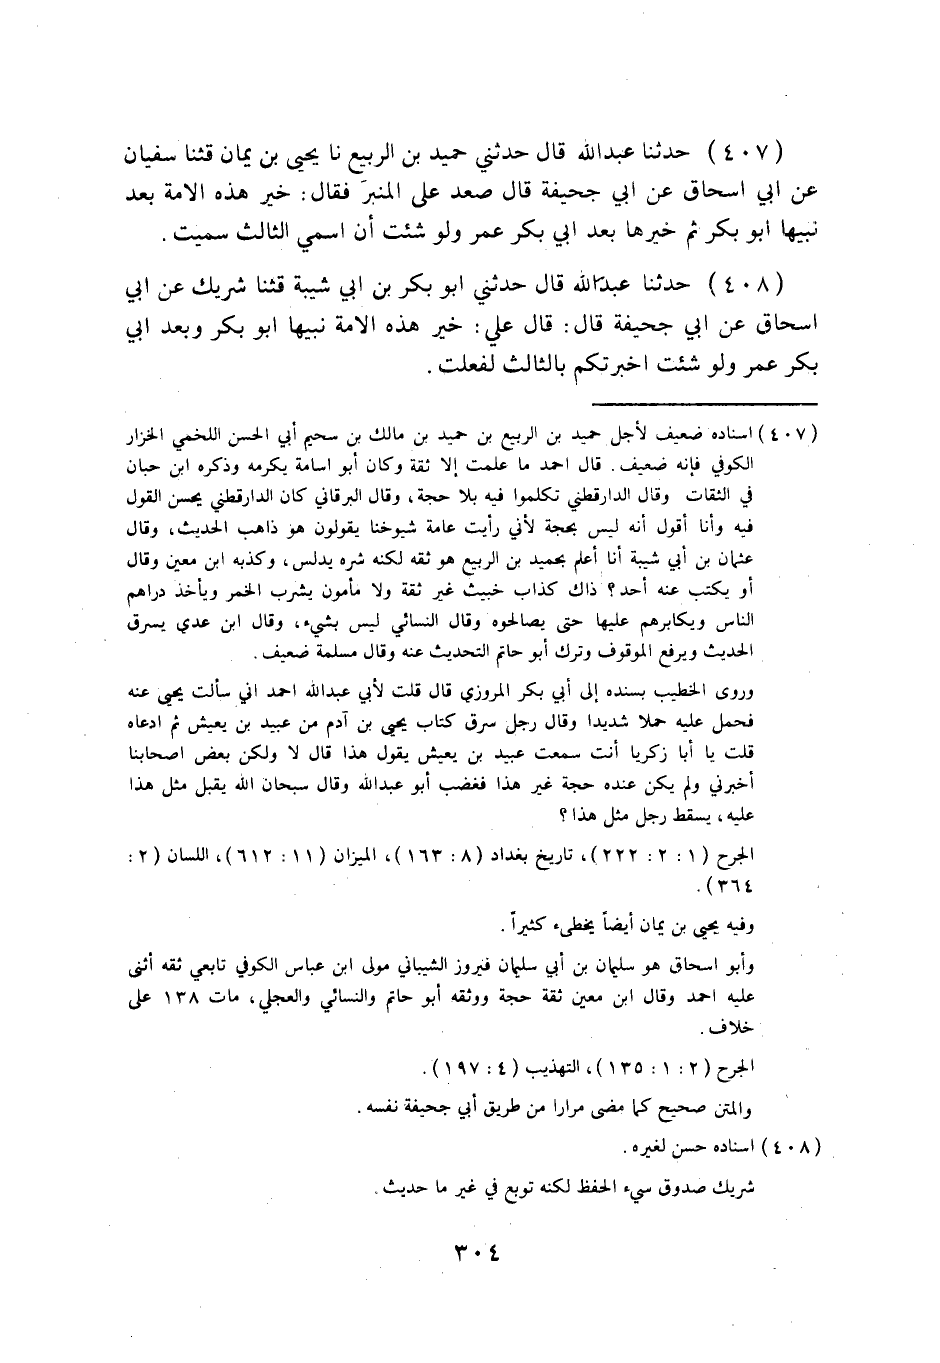 (٤٠٧) حدثنا عبدالله قال حدثني حميد بن الربيع نا يحيى بن يمان قثنا سفيان
عن ابي اسحاق عن ابي جحيفة قال صعد على المنبر فقال: خير هذه الامة بعد
نبيها ابو بكر ثم خيرها بعد ابي بكر عمر ولو شئت أن اسمي الثالث سميت.
(٤٠٨) حدثنا عبدالله قال حدثني ابو بكر بن ابي شيبة قثنا شريك عن ابي
اسحاق عن ابي جحيفة قال: قال علي: خير هذه الامة نبيها ابو بكر وبعد ابي
بكر عمر ولو شئت اخبرتكم بالثالث لفعلت.
(٤٠٧) اسناده ضعيف لأجل حميد بن الربيع بن حميد بن مالك بن سحيم أبي الحسن اللخمي الخزار
الكوفي فإنه ضعيف. قال احمد ما علمت إلا ثقة وكان أبو اسامة يكرمه وذكره ابن حبان
في الثقات وقال الدارقطني تكلموا فيه بلا حجة، وقال البرقاني كان الدارقطني يحسن القول
فيه وأنا أقول أنه ليس بحجة لأني رأيت عامة شيوخنا يقولون هو ذاهب الحديث، وقال
عثمان بن أبي شيبة أنا أعلم بحميد بن الربيع هو ثقه لكنه شره يدلس، وكذبه ابن معين وقال
أو يكتب عنه أحد؟ ذاك كذاب خبيث غير ثقة ولا مأمون يشرب الخمر ويأخذ دراهم
الناس ويكابرهم عليها حتى يصالحوه وقال النسائي ليس بشيء، وقال ابن عدي يسرق
الحديث ويرفع الموقوف وترك أبو حاتم التحديث عنه وقال مسلمة ضعيف.
وروى الخطيب بسنده إلى أبي بكر المروزي قال قلت لأبي عبدالله احمد اني سألت يحيى عنه
فحمل عليه حملا شديدا وقال رجل سرق كتاب يحيى بن آدم من عبيد بن يعيش ثم ادعاه
قلت يا أبا زكريا أنت سمعت عبيد بن يعيش يقول هذا قال لا ولكن بعض اصحابنا
أخبرني ولم يكن عنده حجة غير هذا فغضب أبو عبدالله وقال سبحان الله يقبل مثل هذا
عليه، يسقط رجل مثل هذا؟
الجرح (١: ٢: ٢٢٢)، تاريخ بغداد (٨: ١٦٣)، الميزان (١١: ٦١٢)، اللسان (٢:
٣٦٤).
وفيه يحيى بن يمان أيضاً يخطىء كثيراً.
وأبو اسحاق هو سليمان بن أبي سليمان فيروز الشيباني مولى ابن عباس الكوفي تابعي ثقه أثنى
عليه احمد وقال ابن معين ثقة حجة ووثقه أبو حاتم والنسائي والعجلي، مات ١٣٨ على
خلاف.
الجرح (٢: ١: ١٣٥)، التهذيب (٤: ١٩٧).
والمتن صحيح كما مضى مرارا من طريق أبي جحيفة نفسه.
(٤٠٨) اسناده حسن لغيره.
شريك صدوق سيء الحفظ لكنه توبع في غير ما حديث.
٣٠٤